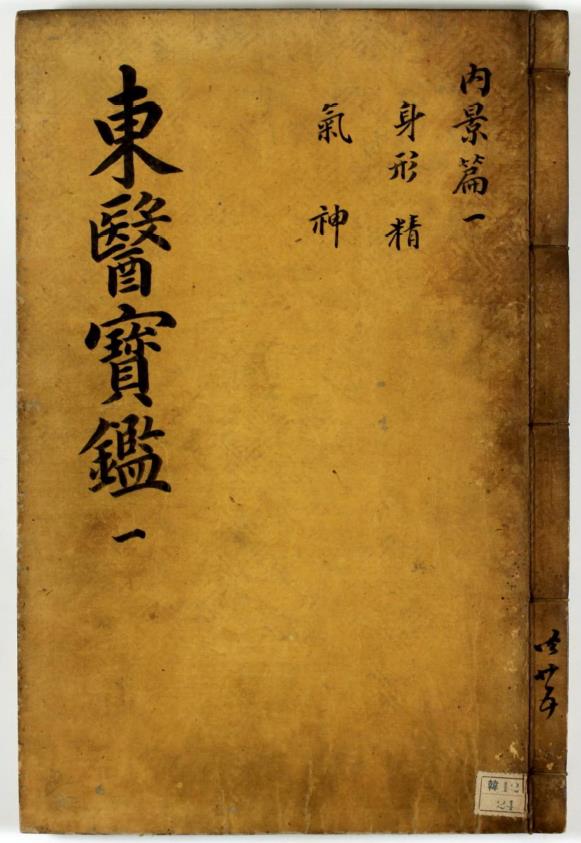 內景篇一
身形 精
氣 神
東醫寶鑑 一
共廿五
韓 12
24